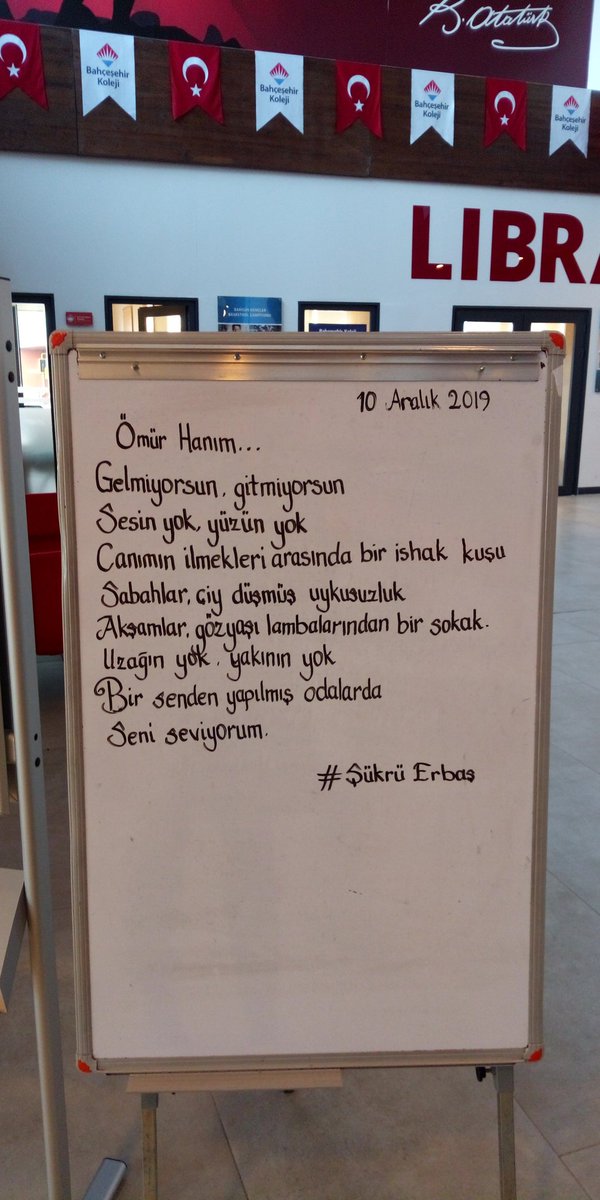 K. Atatürk
Bahçeşehir Koleji
Bahçeşehir Koleji
Bahçeşehir Koleji
Bahçeşehir Koleji
LIBRA
10 Aralık 2019
Ömür Hanım...
Gelmiyorsun, gitmiyorsun
Sesin yok, yüzün yok
Canımın ilmekleri arasında bir ishak kuşu
Sabahlar, çiy düşmüş uykusuzluk
Akşamlar, gözyaşı lambalarından bir sokak.
Uzağın yok, yakının yok
Bir senden yapılmış odalarda
Seni seviyorum.
#Şükrü Erbaş